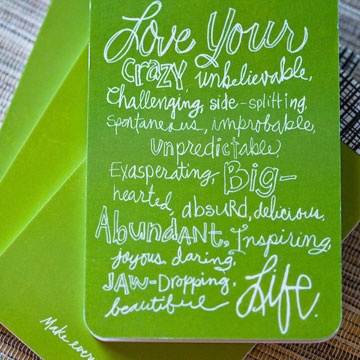 Love Your
CRAZY, unbelievable,
Challenging, side-splitting,
Spontaneous, improbable,
unpredictable,
Exasperating, Big-
hearted, absurd, delicious,
Abundant, Inspiring,
joyous, daring,
JAW-Dropping,
beautiful
Life.
Make every